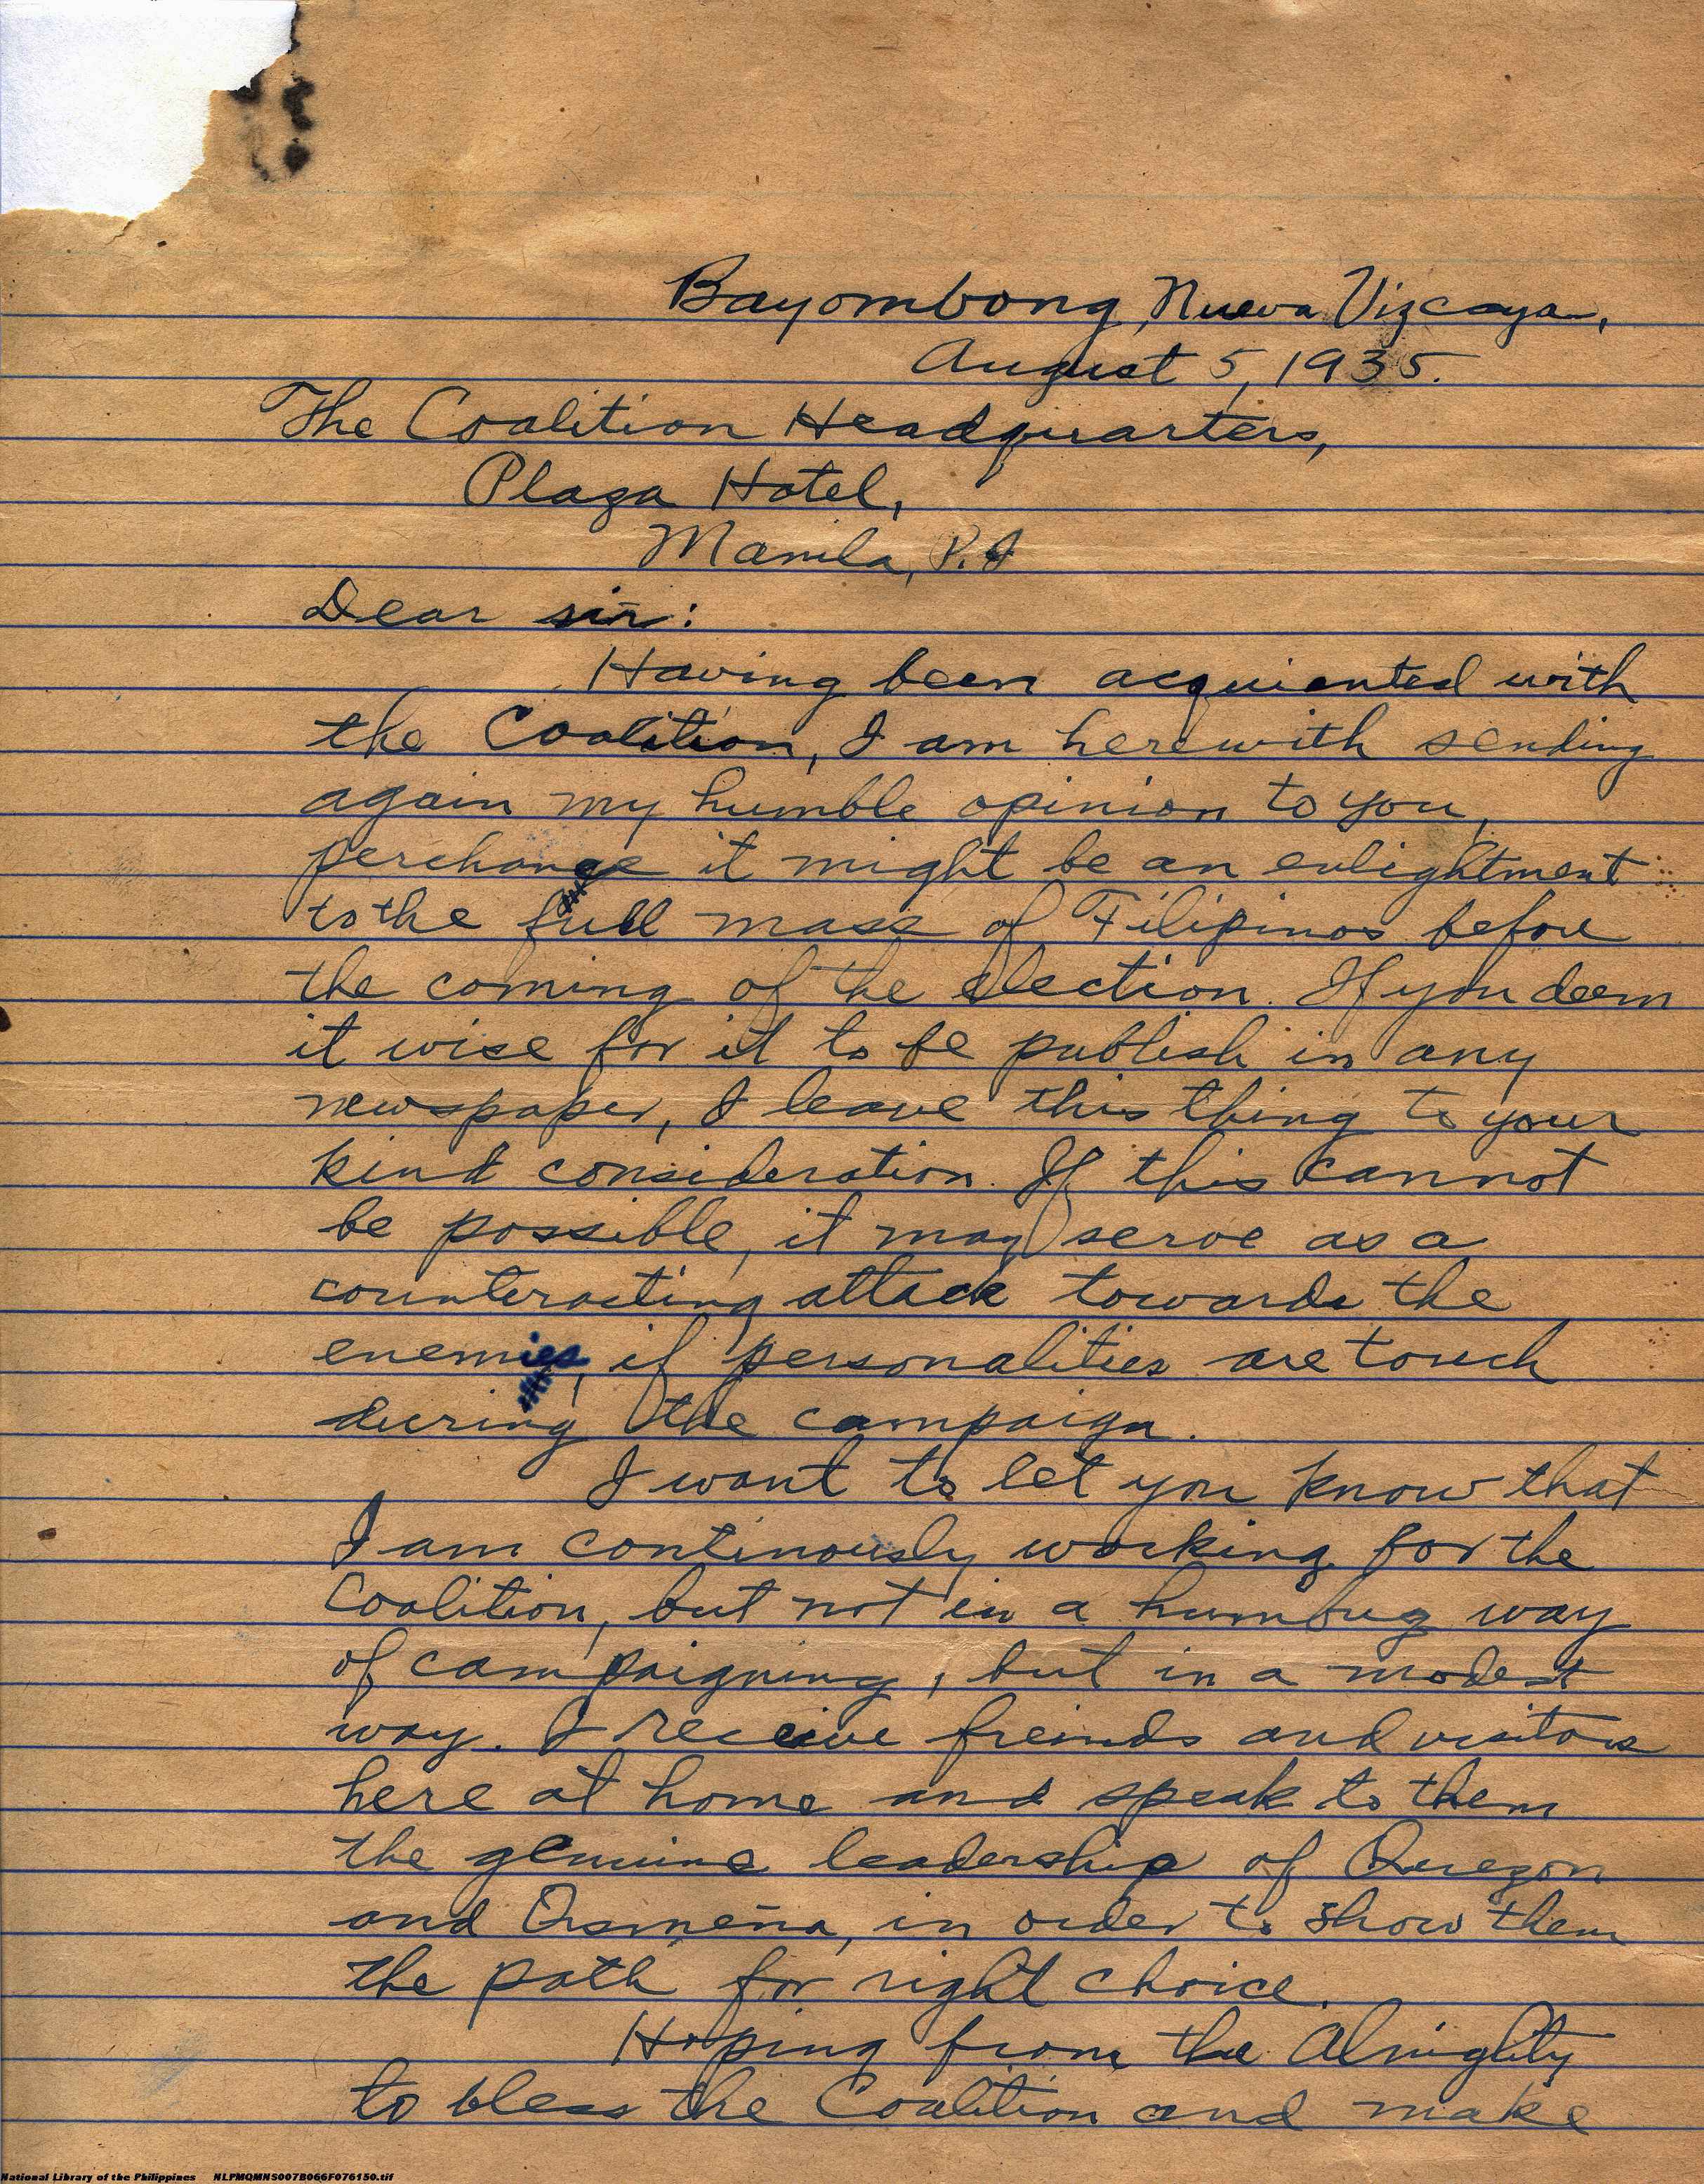 Bayombong, Nueva Vizcaya,
August 5, 1935.
The Coalition Headquarters,
Plaza Hotel,
Manila, P.I
Dear sir:
Having been acquiented with
the Coalition, I am herewith sending
again my humble opinion to you,
perchance it might be an enlightment
to the full mass of Filipinos before
the coming of the election. If you deem
it wise for it to be publish in any
newspaper, I leave this thing to your
kind consideration. If this cannot
be possible, it may serve as a
counteracting attack towards the
enemies, if personalities are touch
during the campaign.
I want to let you know that
I am continously working for the
Coalition, but not in a humbug way
of campaigning, but in a modest
way. I receive freinds and visitors
here at home and speak to them
the genuine leadership of Quezon
and Osmeña, in order to show them
the path for right choice.
Hoping from the Almighty
to bless the Coalition and make
National Library of the Philippines NLPMQMNS007B066F076150.tif